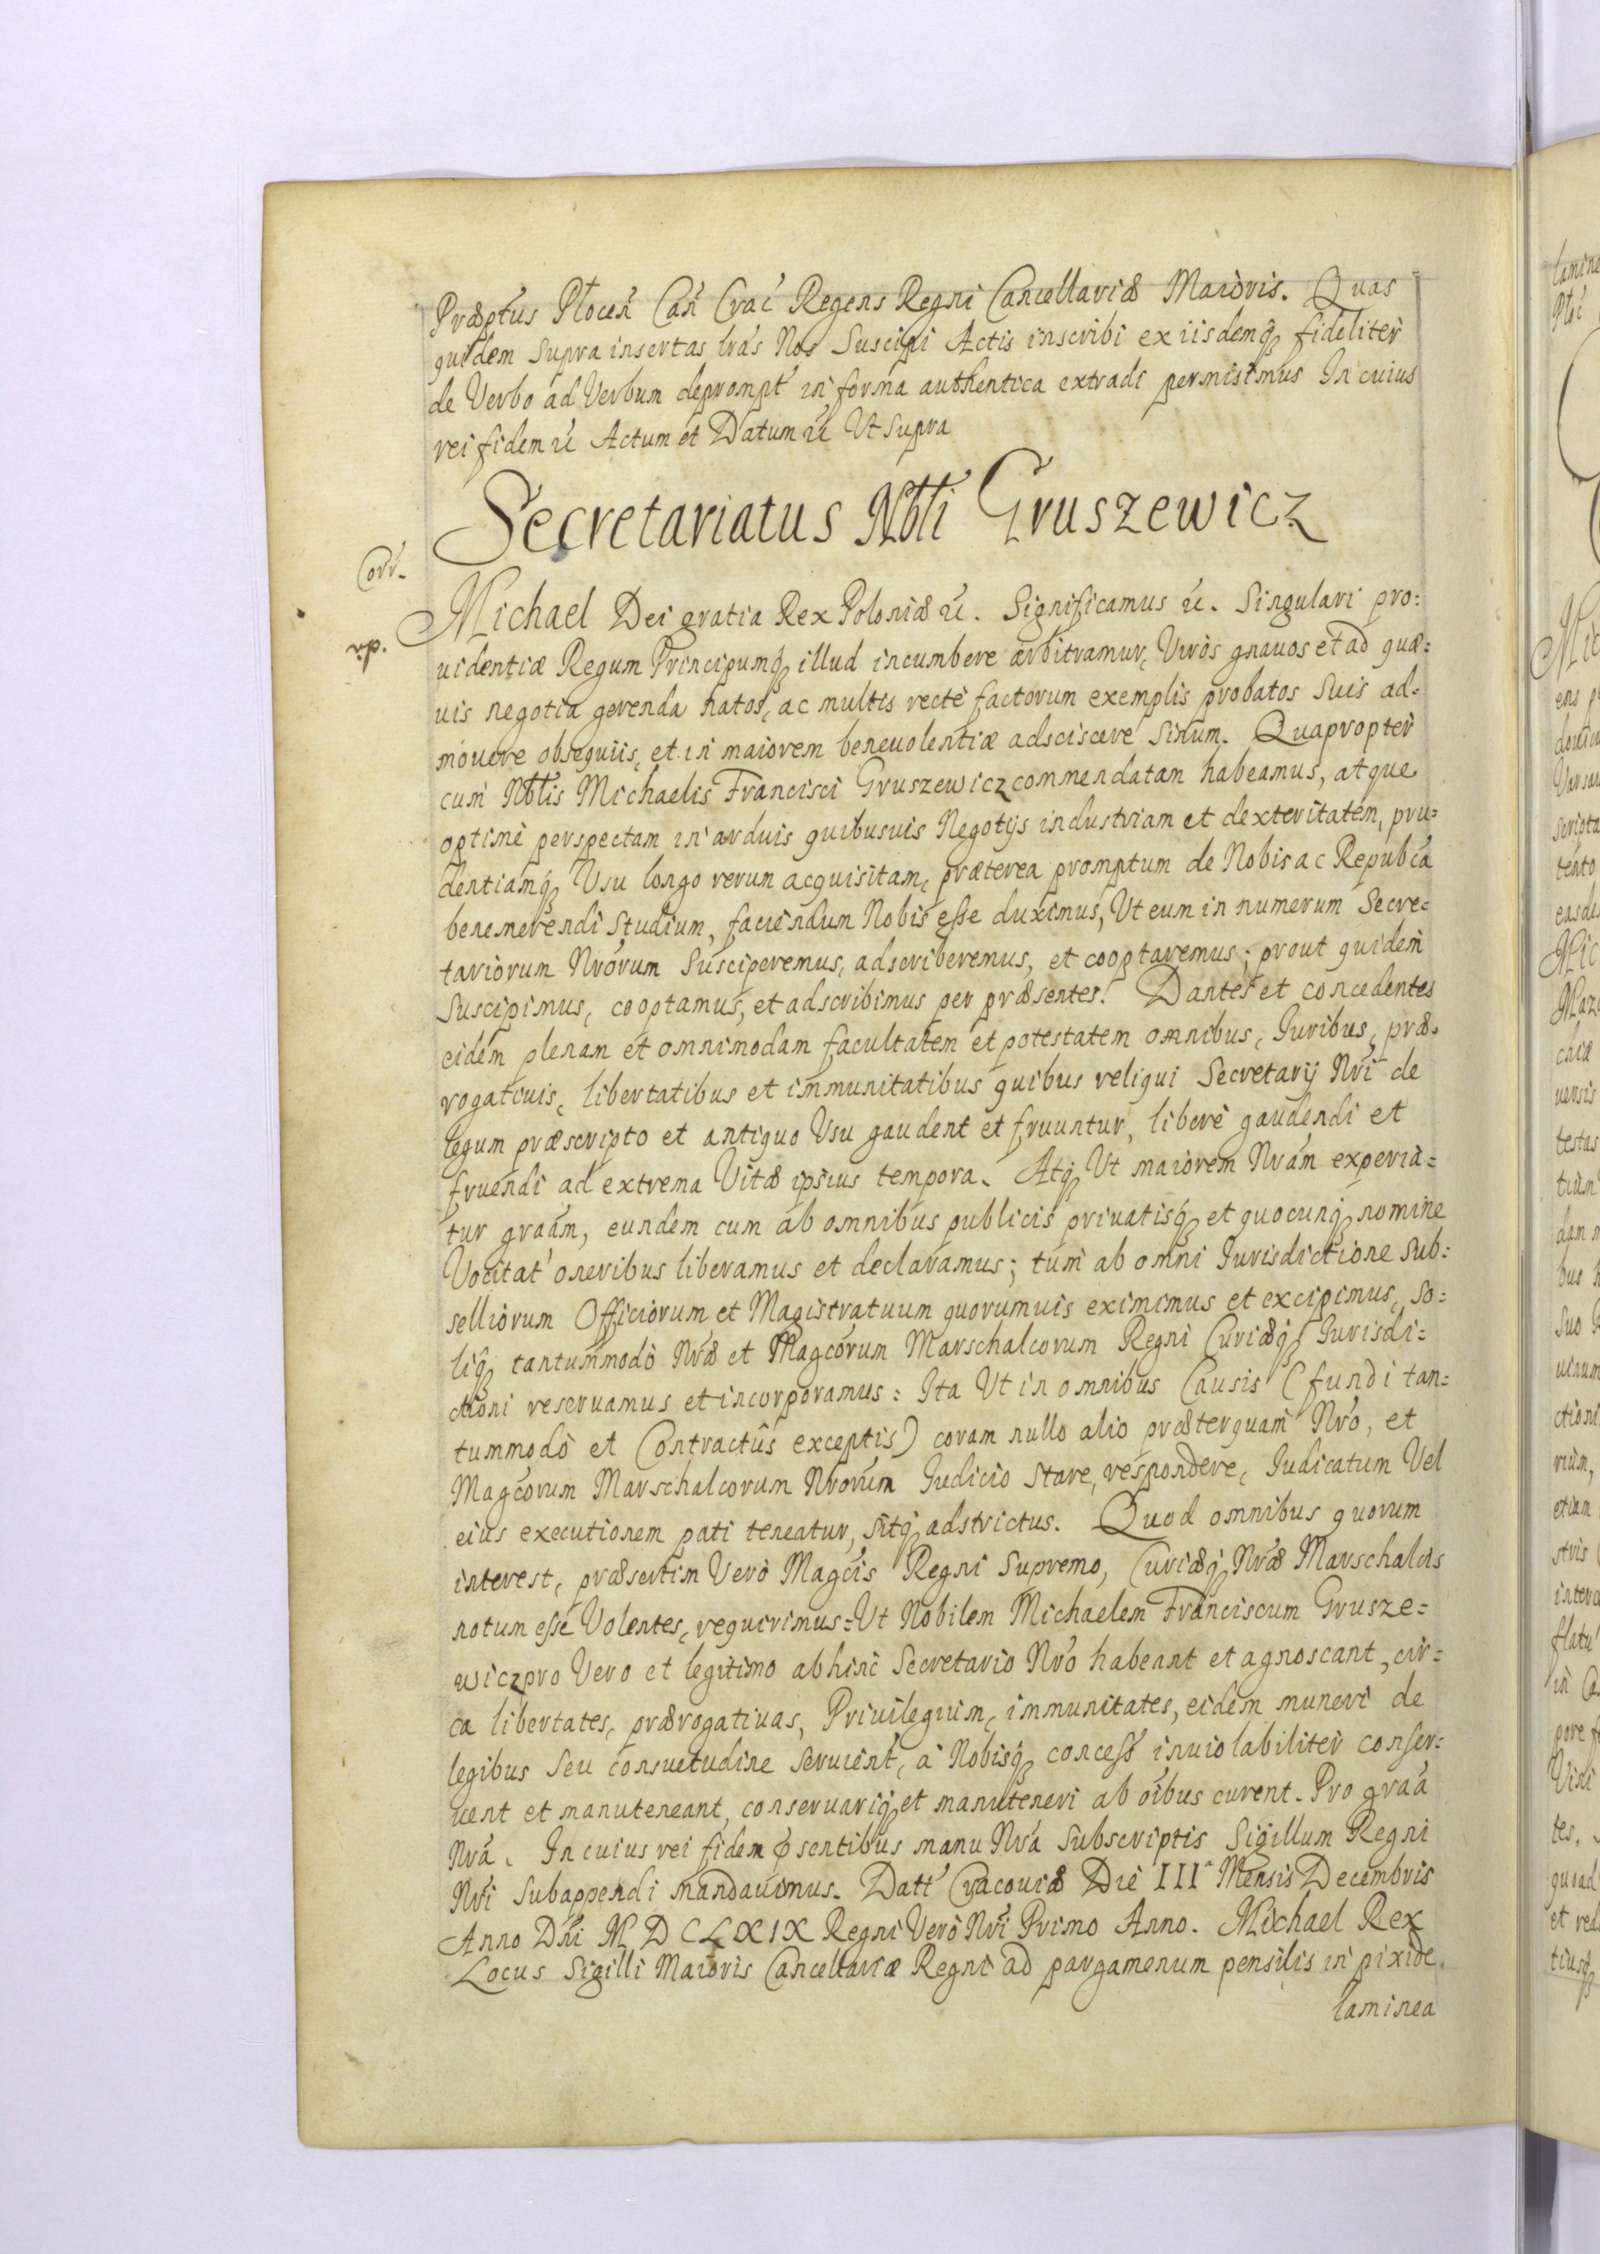 Præptus Plocen̄ Can̄ Crac̄ Regens Regni Cancellariæ Maioris. Quas
quidem supra insertas lrās Nos Suscipi Actis inscribi ex iisdemq́ꝫ fideliter
de Verbo ad Verbum deprompt̄ in forma authentica extradi permisimus In cuius
rei fidem ꝛc̄ Actum et Datum ꝛc̄ Ut Supra
Secretariatus Nbli Gruszewicz
Corr.
Michael Dei gratia Rex Poloniæ ꝛc̄. Significamus ꝛc̄. Singulari pro:
uidentiæ Regum Principumq́ꝫ illud incumbere arbitramur, Viros gnauos et ad quæ:
uis negotia gerenda natos, ac multis recte factorum exemplis probatos Suis ad:
mouere obsequiis, et in maiorem beneuolentiæ adsciscere Sinum. Quapropter
cum Nblis Michaelis Francisci Gruszewicz commendatam habeamus, atque
optime perspectam in arduis quibusuis Negotijs industriam et dexteritatem, pru:
dentiamq́ꝫ Usu longo rerum acquisitam, præterea promptum de Nobis ac Repubca
benemerendi Studium, faciendum Nobis esse duximus, Ut eum in numerum Secre:
tariorum Nrōrum Susciperemus, adscriberemus, et cooptaremus; prout quidem
Suscipimus, cooptamus, et adscribimus per præsentes. Dantes et concedentes
eidem plenam et omnimodam facultatem et potestatem omnibus, Iuribus, præ:
rogatiuis, libertatibus et immunitatibus quibus reliqui Secretarij Nrī de
legum præscripto et antiquo Usu gaudent et fruuntur, libere gaudendi et
fruendi ad extrema Vitæ ipsius tempora. Atq́ꝫ Ut maiorem Nrām experia:
tur graām, eundem cum ab omnibus publicis priuatisq́ꝫ et quocunq́ꝫ nomine
Vocitat̄ oneribus liberamus et declaramus; tum ab omni Iurisdictione Sub:
selliorum Officiorum et Magistratuum quorumuis eximimus et excipimus, So:
liq́ꝫ tantummodo Nræ et Magcorum Marschalcorum Regni Curiæq́ꝫ Iurisdi:
ctioni reseruamus et incorporamus: Ita Ut in omnibus Causis (fundi tan:
tummodo et Contractûs exceptis) coram nullo alio præterquam Nrō, et
Magcorum Marschalcorum Nrorum Iudicio Stare, respondere, Iudicatum Vel
eius executionem pati teneatur, sitq́ꝫ adstrictus. Quod omnibus quorum
interest, præsertim Vero Magcis Regni Supremo, Curiæq́ꝫ Nræ Marschalcis
notum esse Volentes, requirimus: Ut Nobilem Michaelem Franciscum Grusze:
wicz pro Vero et legitimo abhinc Secretario Nro habeant et agnoscant, cir:
ca libertates, prærogatiuas, Priuilegium, immunitates, eidem muneri de
legibus Seu consuetudine Seruient̄, a Nobisq́ꝫ concess̄ inuiolabiliter conser:
uent et manuteneant, conseruariq́ꝫ et manuteneri ab oībus curent. Pro graā
Nrā. In cuius rei fidem p̄sentibus manu Nrā Subscriptis Sigillum Regni
Nrī Subappendi mandauimus. Datt̄ Cracouiæ Die III Mensis Decembris
Anno Dnī M D C L X I X Regni Vero Nrī Primo Anno. Michael Rex
Locus Sigilli Maioris Cancellariæ Regni ad pargamenum pensilis in pixide
laminea